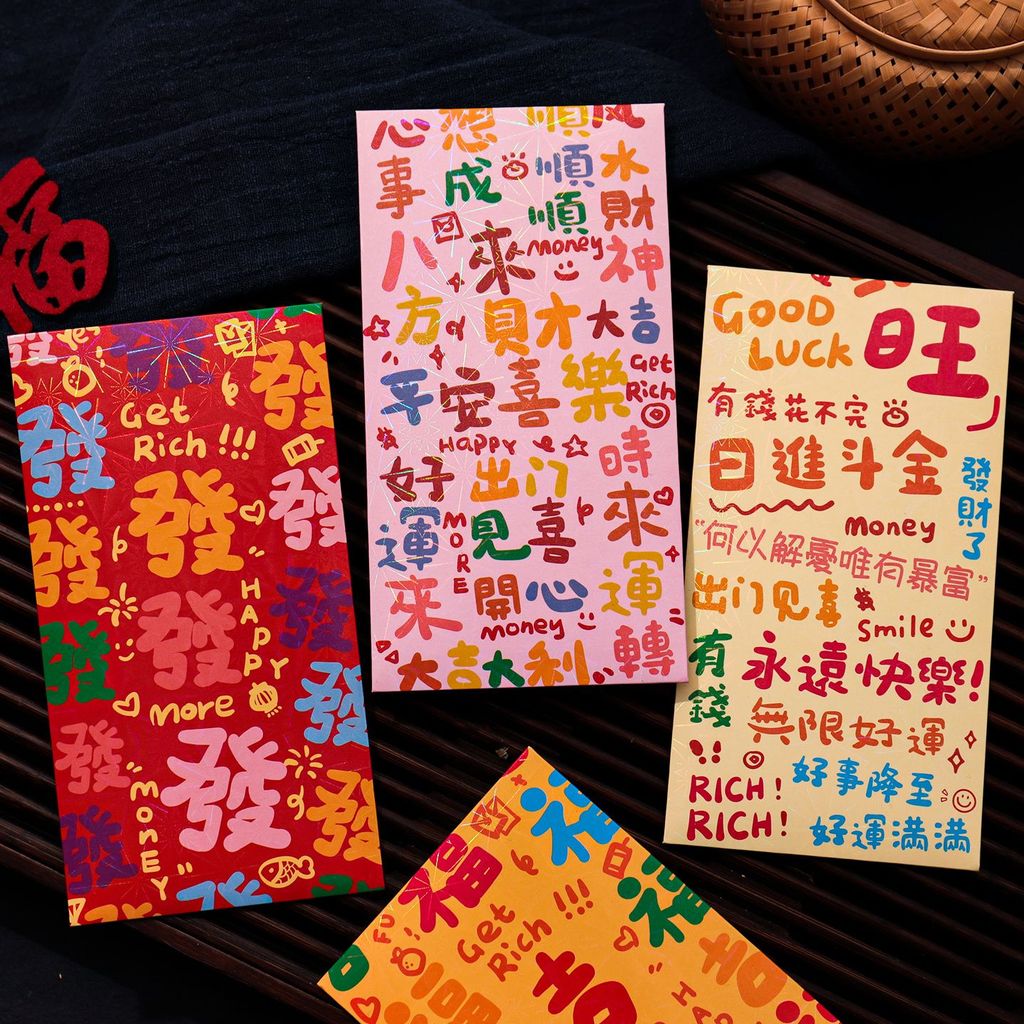 福
發
Get
Rich!!!
發
發
發
發
發
HAPPY
發
發
發
發
more
發
發
"Money"
發
發
發
心想順風
事成順水
順財
八來money神
方貝才大吉
平安喜樂Get
Rich
HAPPY
好出门時
運MORE見喜來
來開心運
money
大吉大利轉
GOOD
LUCK
旺
有錢花不完
日進斗金
發財了
money
"何以解憂唯有暴富"
出门见喜
smile
有錢
永遠快樂!
無限好運
RICH!
RICH!
好事降至
好運滿滿
福
福
福
FU
Get
Rich!!!
吉
吉
福